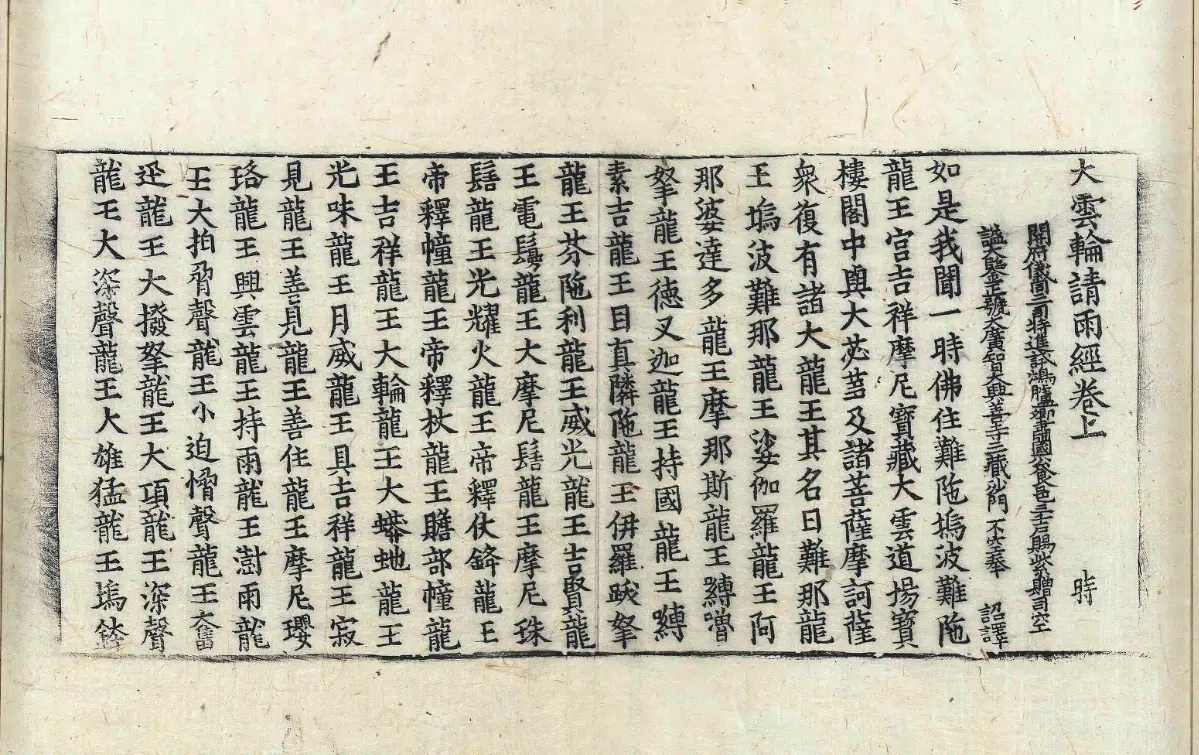 大雲輪請雨經卷上 時
開府儀同三司特進試鴻臚卿肅國公食邑三千戶賜紫贈司空
謚大鑒正號大廣智大興善寺三藏沙門不空奉 詔譯
如是我聞一時佛住難陁塢波難陁
龍王宮吉祥摩尼寶藏大雲道場寶
樓閣中與大苾芻及諸菩薩摩訶薩
衆復有諸大龍王其名曰難那龍
王塢波難那龍王娑伽羅龍王阿
那婆達多龍王摩那斯龍王嚩嚕
拏龍王德叉迦龍王持國龍王嚩
素吉龍王目真隣陁龍王伊羅跋拏
龍王芬陁利龍王威光龍王吉賢龍
王電鬘龍王大摩尼髻龍王摩尼珠
髻龍王光耀火龍王帝釋仗鋒龍王
帝釋幢龍王帝釋杖龍王贍部幢龍
王吉祥龍王大輪龍王大蟒虵龍王
光味龍王月威龍王具吉祥龍王寂
見龍王善見龍王善住龍王摩尼瓔
珞龍王興雲龍王持雨龍王澍雨龍
王大拍脅聲龍王小拍脅聲龍王奮
迅龍王大撥拏龍王大項龍王深聲
龍王大深聲龍王大雄猛龍王塢鉢